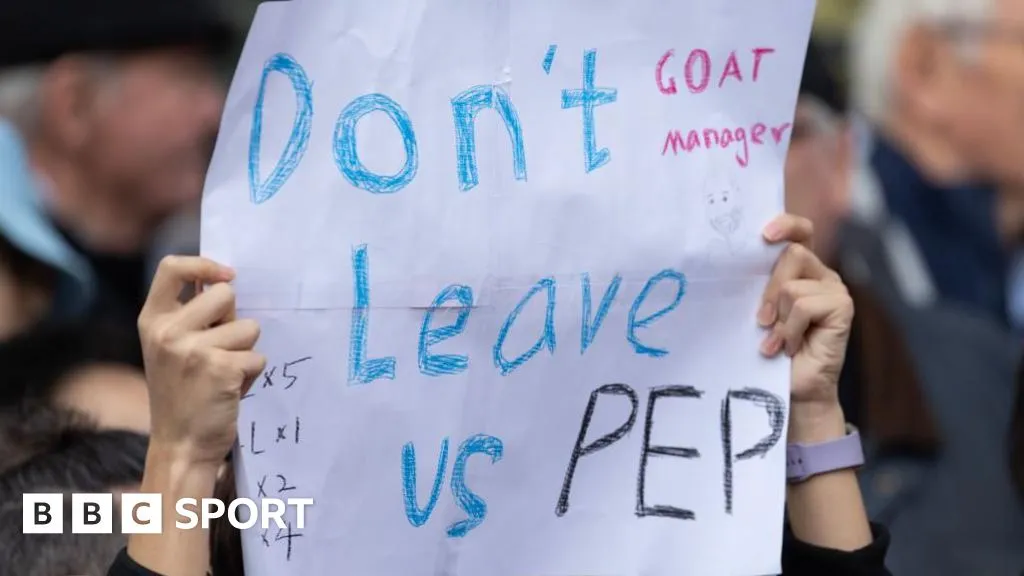 Don't
GOAT
manager
Leave
us PEP
x5
L x1
x2
x4
BBC SPORT